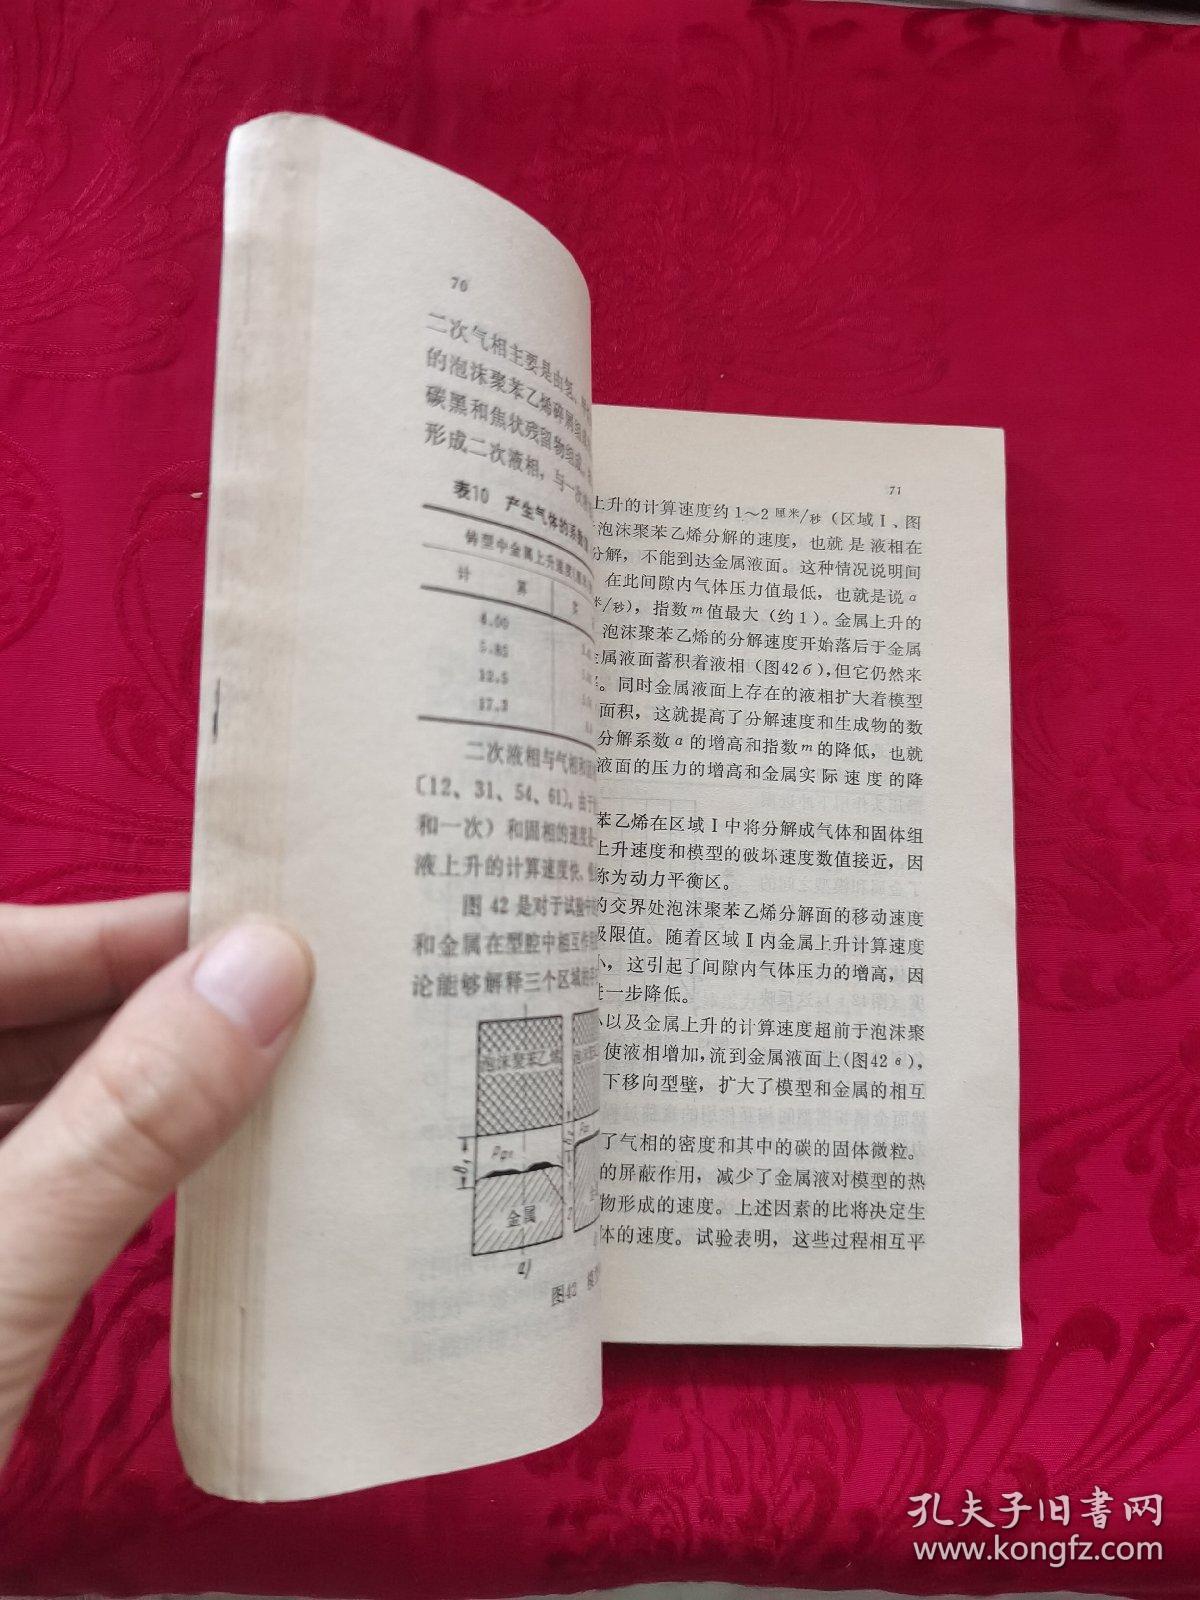 70
二次气相主要是由氢、
的泡沫聚苯乙烯碎屑组成
碳黑和焦状残留物组成。
形成二次液相，与一次
表10 产生气体的系数
铸型中金属上升速度
计 算
4.00
5.85
12.5
17.3
二次液相与气相和
〔12、31、54、61〕。由于
和一次）和固相的速度是
液上升的计算速度快、
图 42 是对于试验中
和金属在型腔中相互作用
论能够解释三个区域的
泡沫聚苯乙烯
金属
a)
图42 模
71
上升的计算速度约1～2厘米/秒（区域Ⅰ、图
泡沫聚苯乙烯分解的速度，也就是液相在
分解，不能到达金属液面。这种情况说明间
在此间隙内气体压力值最低，也就是说a
米/秒），指数m值最大（约1）。金属上升的
泡沫聚苯乙烯的分解速度开始落后于金属
金属液面蓄积着液相（图42б），但它仍然来
。同时金属液面上存在的液相扩大着模型
面积，这就提高了分解速度和生成物的数
分解系数a的增高和指数m的降低，也就
液面的压力的增高和金属实际速度的降
苯乙烯在区域Ⅰ中将分解成气体和固体组
上升速度和模型的破坏速度数值接近，因
称为动力平衡区。
的交界处泡沫聚苯乙烯分解面的移动速度
极限值。随着区域Ⅱ内金属上升计算速度
小，这引起了间隙内气体压力的增高，因
进一步降低。
小以及金属上升的计算速度超前于泡沫聚
使液相增加，流到金属液面上（图42в），
下移向型壁，扩大了模型和金属的相互
了气相的密度和其中的碳的固体微粒。
的屏蔽作用，减少了金属液对模型的热
物形成的速度。上述因素的比将决定生
体的速度。试验表明，这些过程相互平
孔夫子旧书网
www.kongfz.com